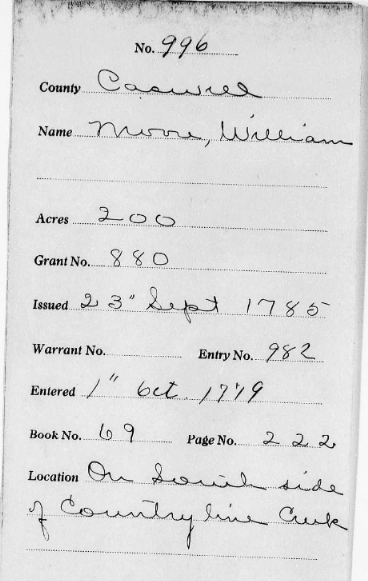 No. 996
County Caswell
Name Moore, William
Acres 200
Grant No. 880
Issued 23" Sept 1785
Warrant No. Entry No. 982
Entered 1" Oct. 1779
Book No. 69 Page No. 222
Location On South side
of Country line Creek